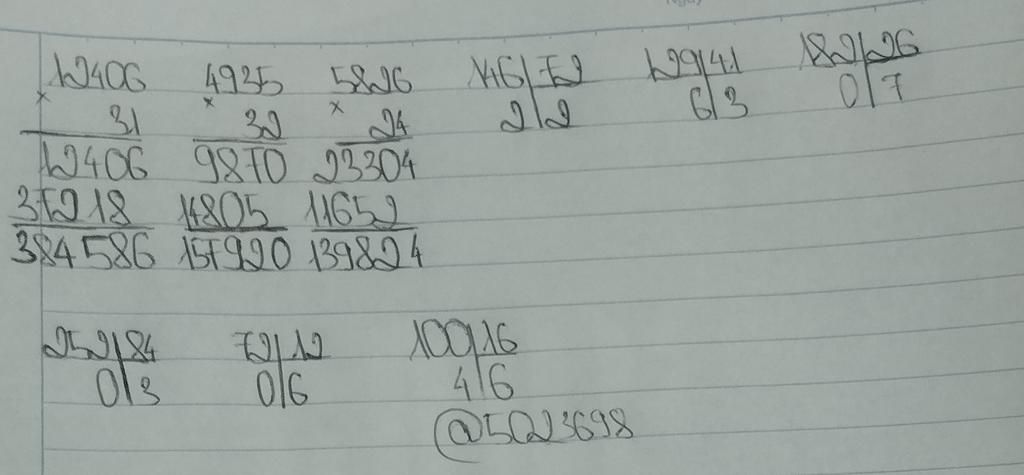 12406 4935 5826 146 72 129 41 182 26
× 31 × 32 × 24 2 2 6 3 0 7
12406 9870 23304
37218 14805 11652
384586 157920 139824
252 84 72 12 100 16
0 3 0 6 4 6
@5023698